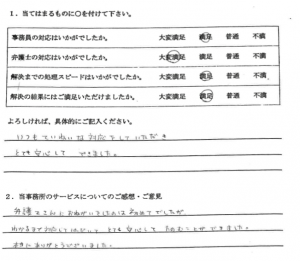 1．当てはまるものに○を付けて下さい。
事務員の対応はいかがでしたか。 大変満足 満足 普通 不満
弁護士の対応はいかがでしたか。 大変満足 満足 普通 不満
解決までの処理スピードはいかがでしたか。 大変満足 満足 普通 不満
解決の結果にはご満足いただけましたか。 大変満足 満足 普通 不満
よろしければ、具体的にご記入ください。
いつもていねいな対応をしていただき
とても安心して できました。
2．当事務所のサービスについてのご感想・ご意見
弁護士さんにおねがいしましたのは初めてでしたが
わかるまで対応していただいて とても安心して たのむことができました。
本当にありがとうございました。